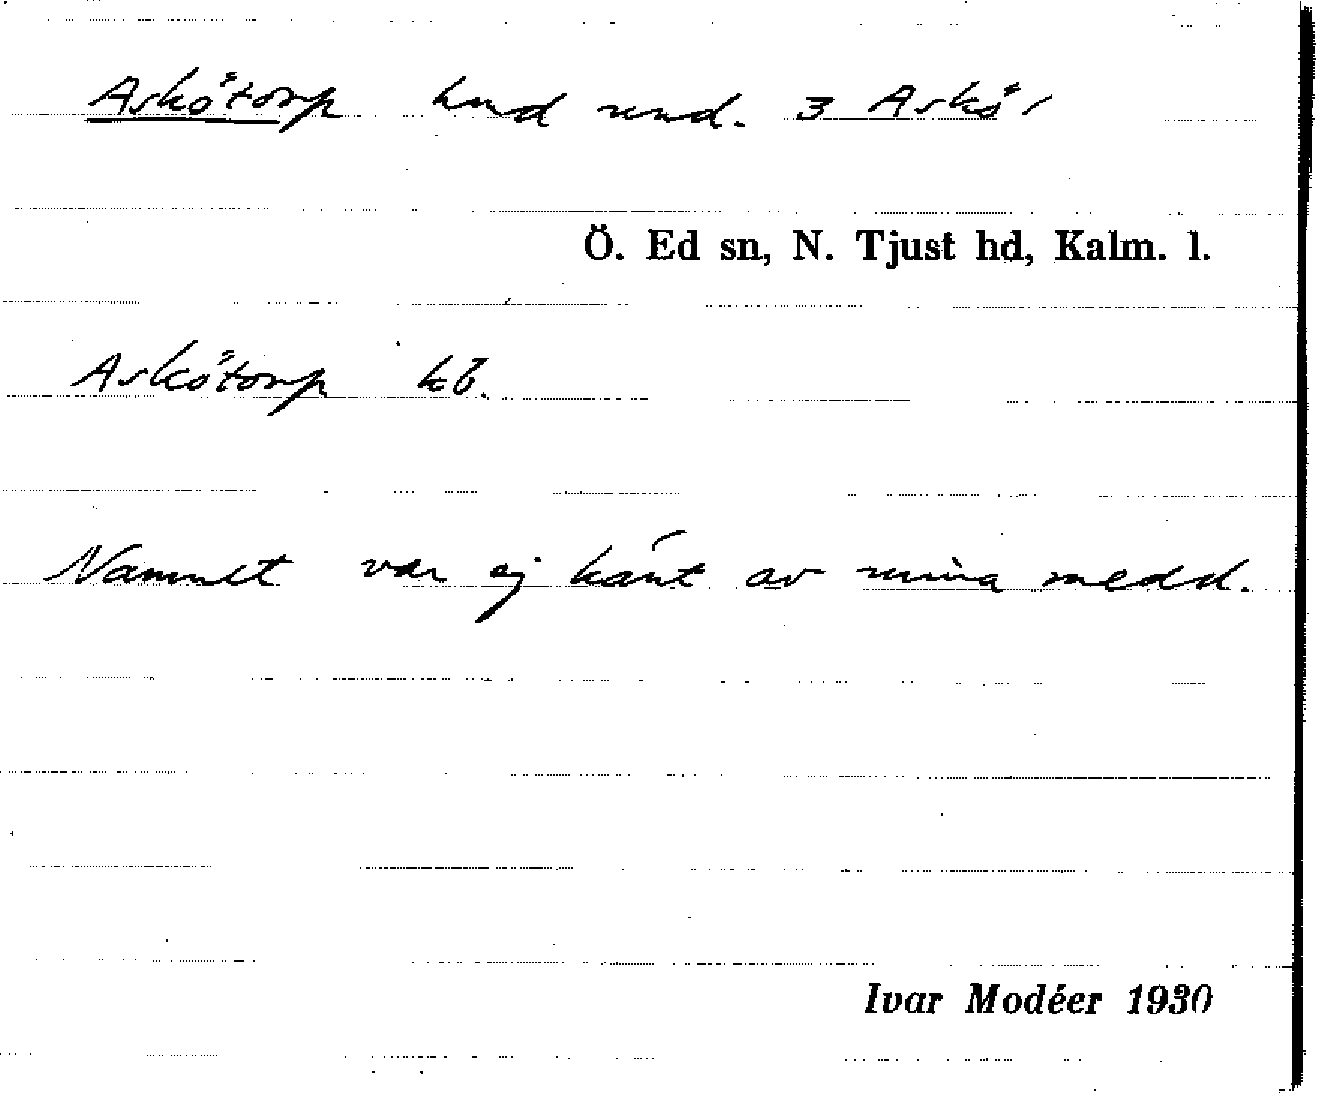 Asköt​orp lmd und. 3 Askö,
Ö. Ed sn, N. Tjust hd, Kalm. l.
Askötorp kb.
Namnet var ej känt av mina medd.
Ivar Modéer 1930